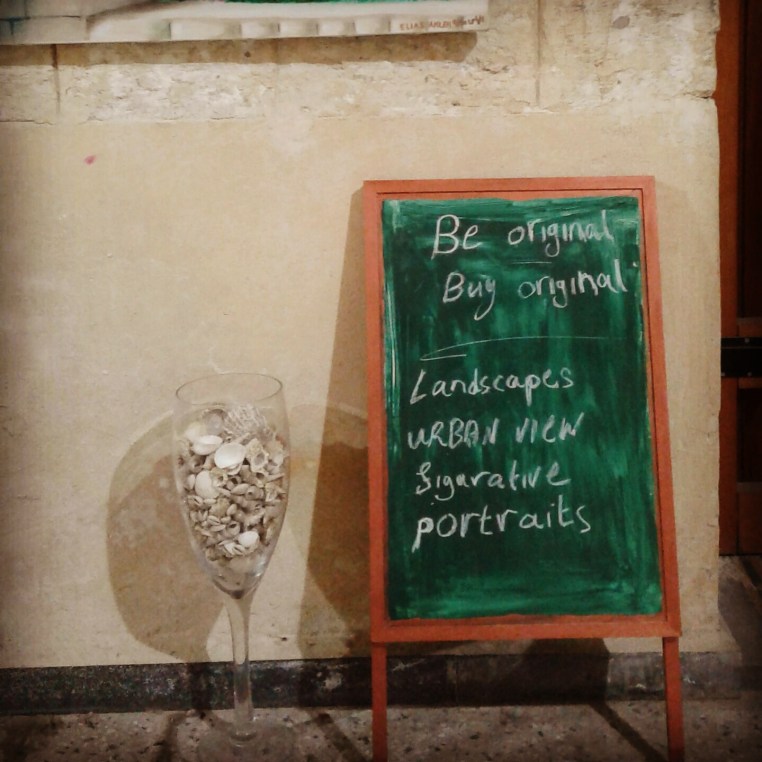 Be original
Buy original
Landscapes
URBAN VIEW
figurative
portraits